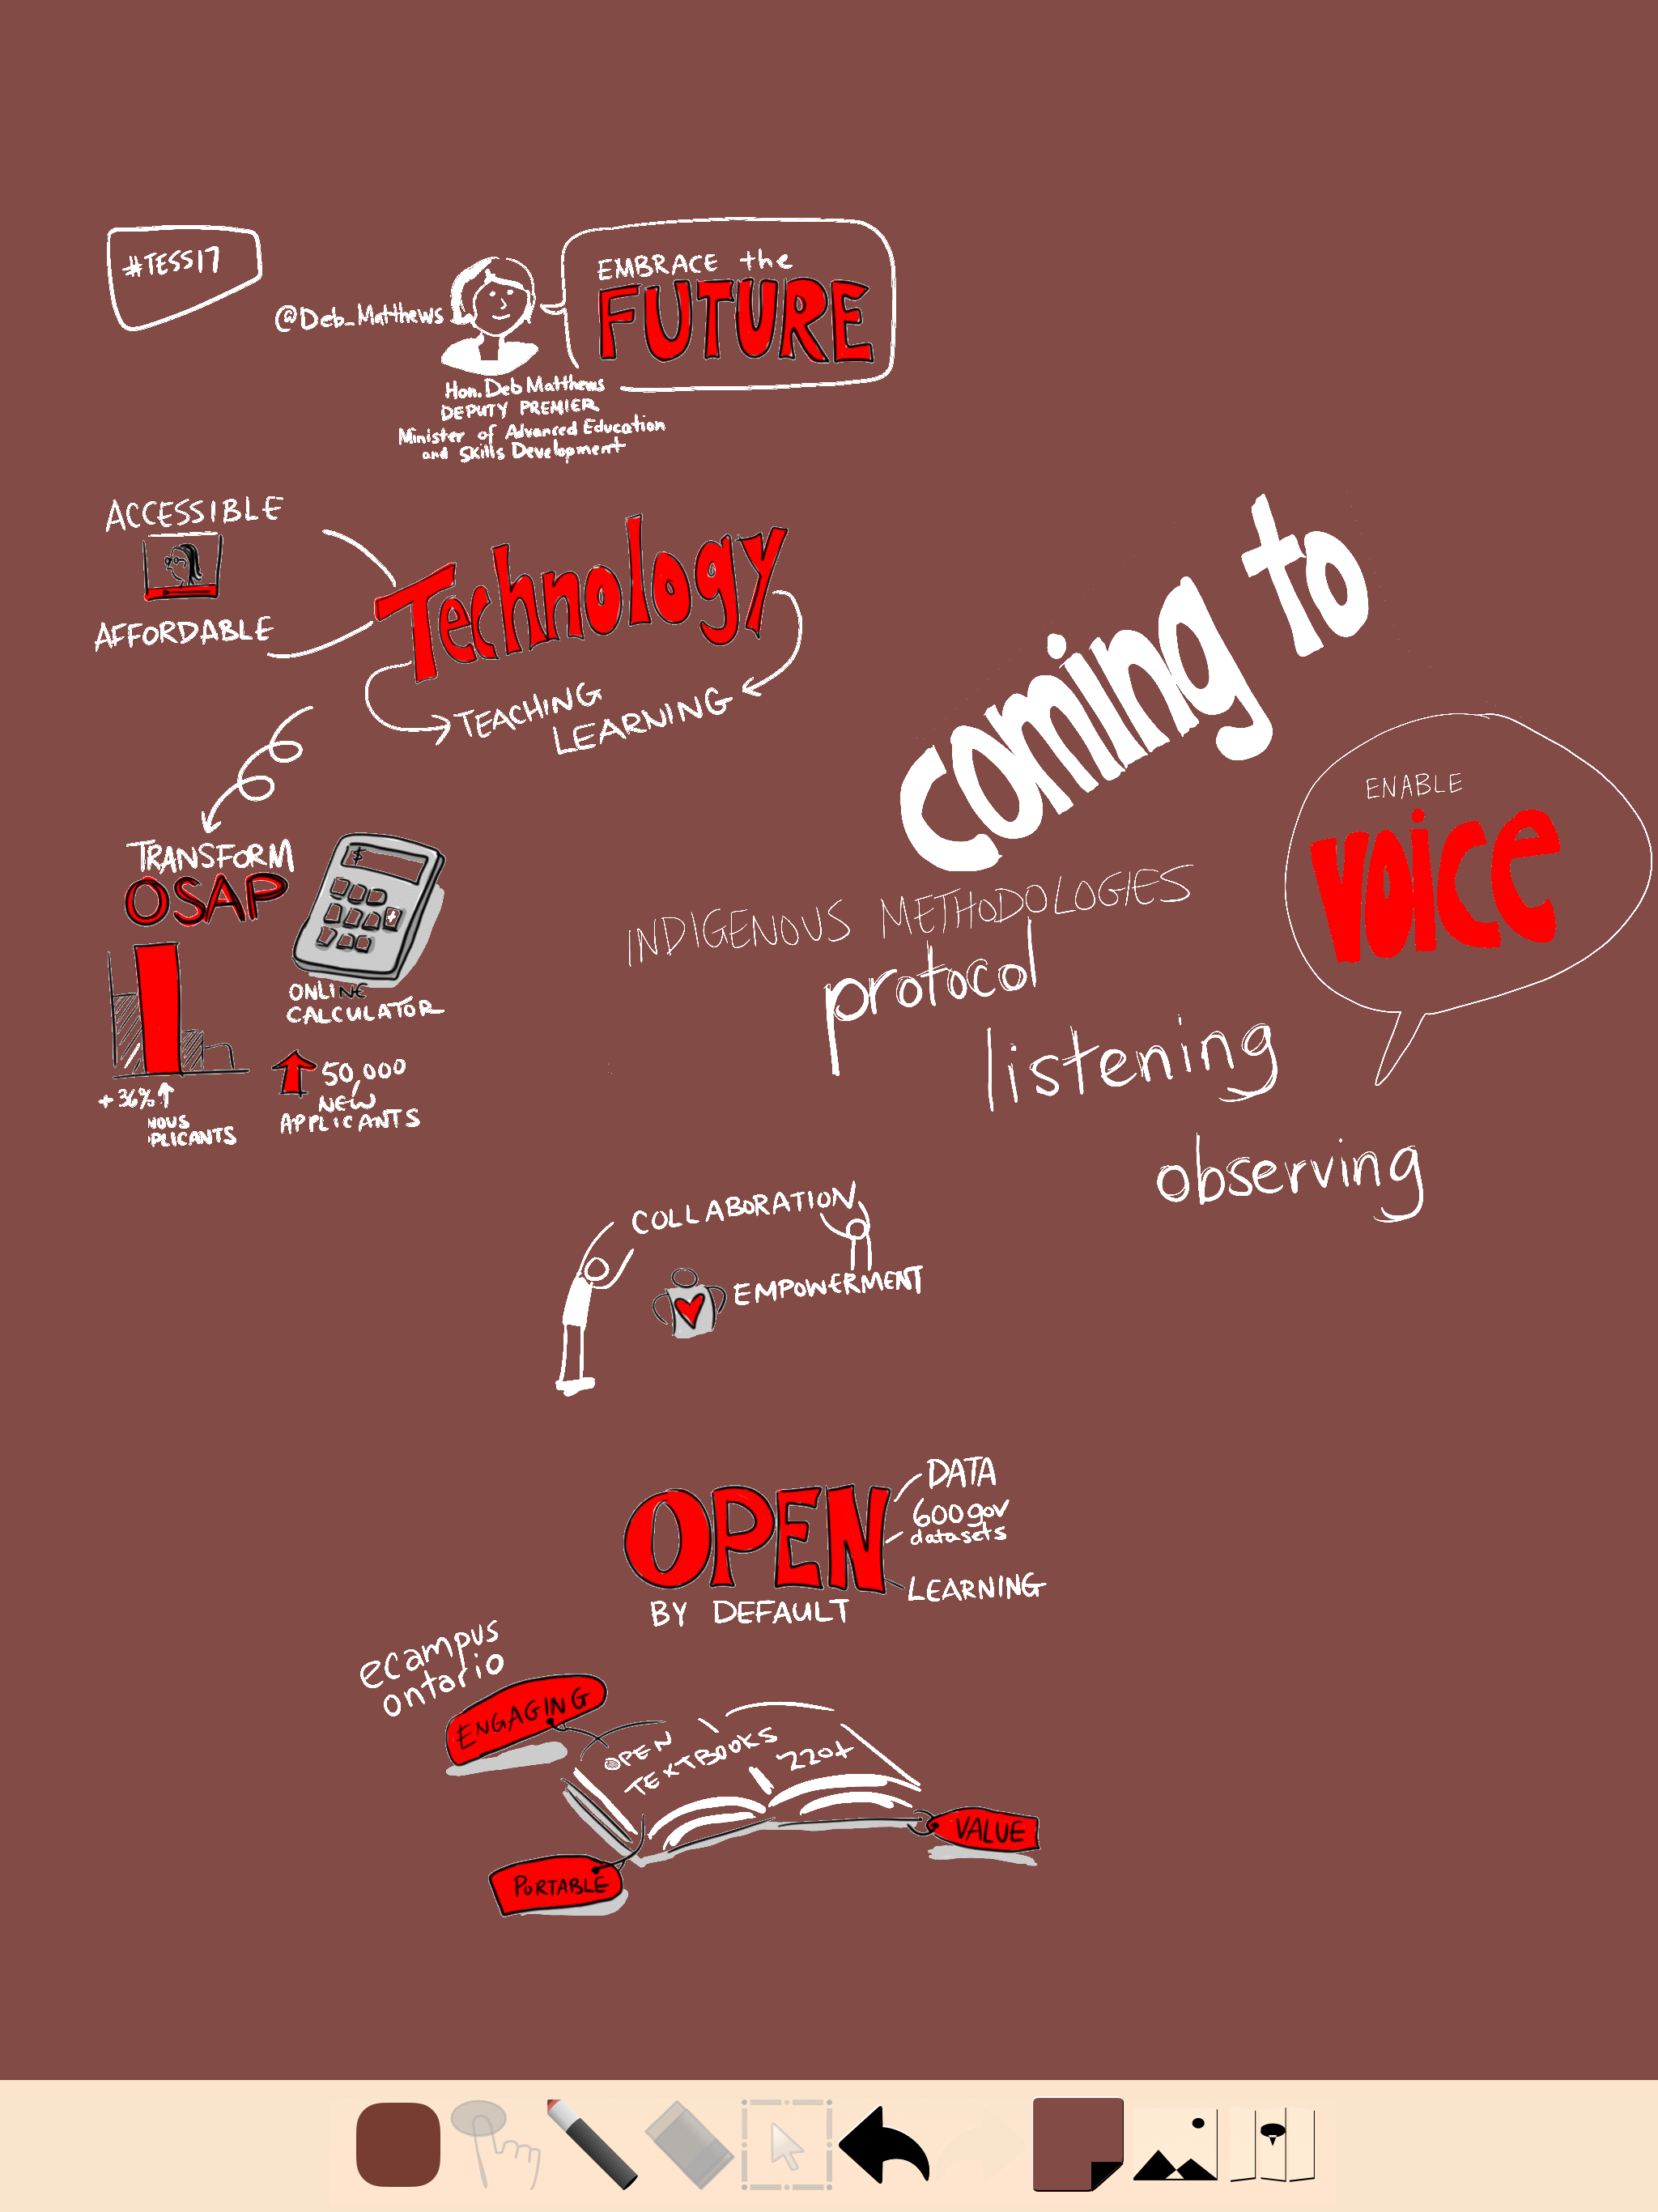 #TESS17
@Deb_Matthews
EMBRACE the
FUTURE
Hon. Deb Matthews
DEPUTY PREMIER
Minister of Advanced Education
and Skills Development
ACCESSIBLE
AFFORDABLE
Technology
TEACHING
LEARNING
TRANSFORM
OSAP
$
+
ONLINE
CALCULATOR
+36%
NOUS
PLICANTS
50,000
NEW
APPLICANTS
coming to
ENABLE
VOICE
INDIGENOUS METHODOLOGIES
protocol
listening
observing
COLLABORATION
EMPOWERMENT
OPEN
BY DEFAULT
DATA
600 gov
datasets
LEARNING
ecampus
ontario
ENGAGING
OPEN
TEXTBOOKS
220+
VALUE
PORTABLE